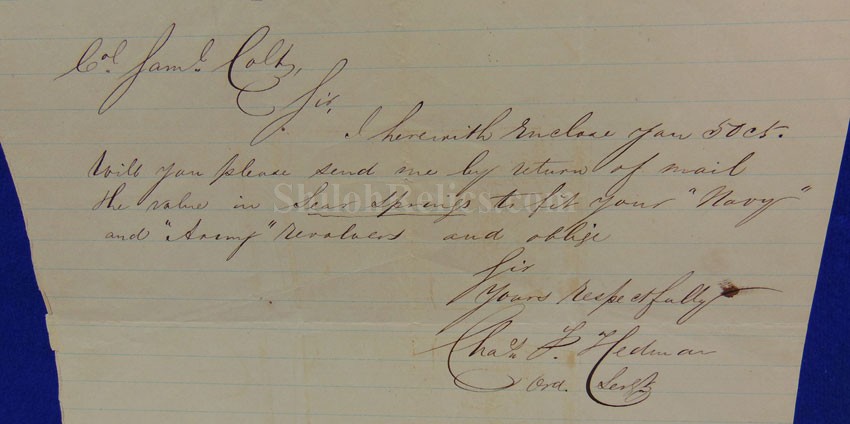 Col. Saml. Colt,
Sir,
I herewith Enclose you 50 cts.
Will you please send me by return of mail
the value in Sear Springs to fit your "Navy"
and "Army" revolvers and oblige
Sir
Yours Respectfully
Chas. F. Hedman
Ord. Sergt.
ShilohRelics.com